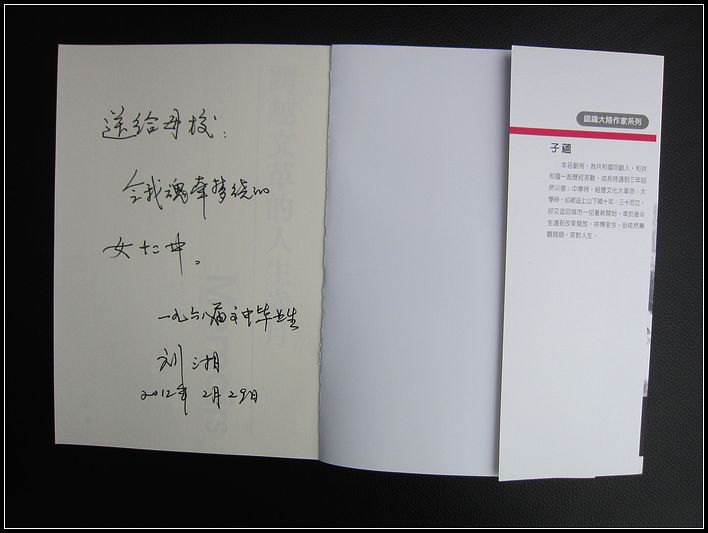 送给母校:
令我魂牵梦绕的
女十二中。
一九六八届高中毕业生
刘湘
2012年2月29日
認識大陸作家系列
子蘊
本名劉湘，為共和國同齡人，和共
和國一起歷經苦難。成長時遇到三年自
然災害；中學時，經歷文化大革命；大
學時，卻被迫上山下鄉十年；三十而立，
卻又返回城市一切重新開始。幸於後半
生遇到改革開放，拼搏至今。但依然樂
觀開朗，笑對人生。